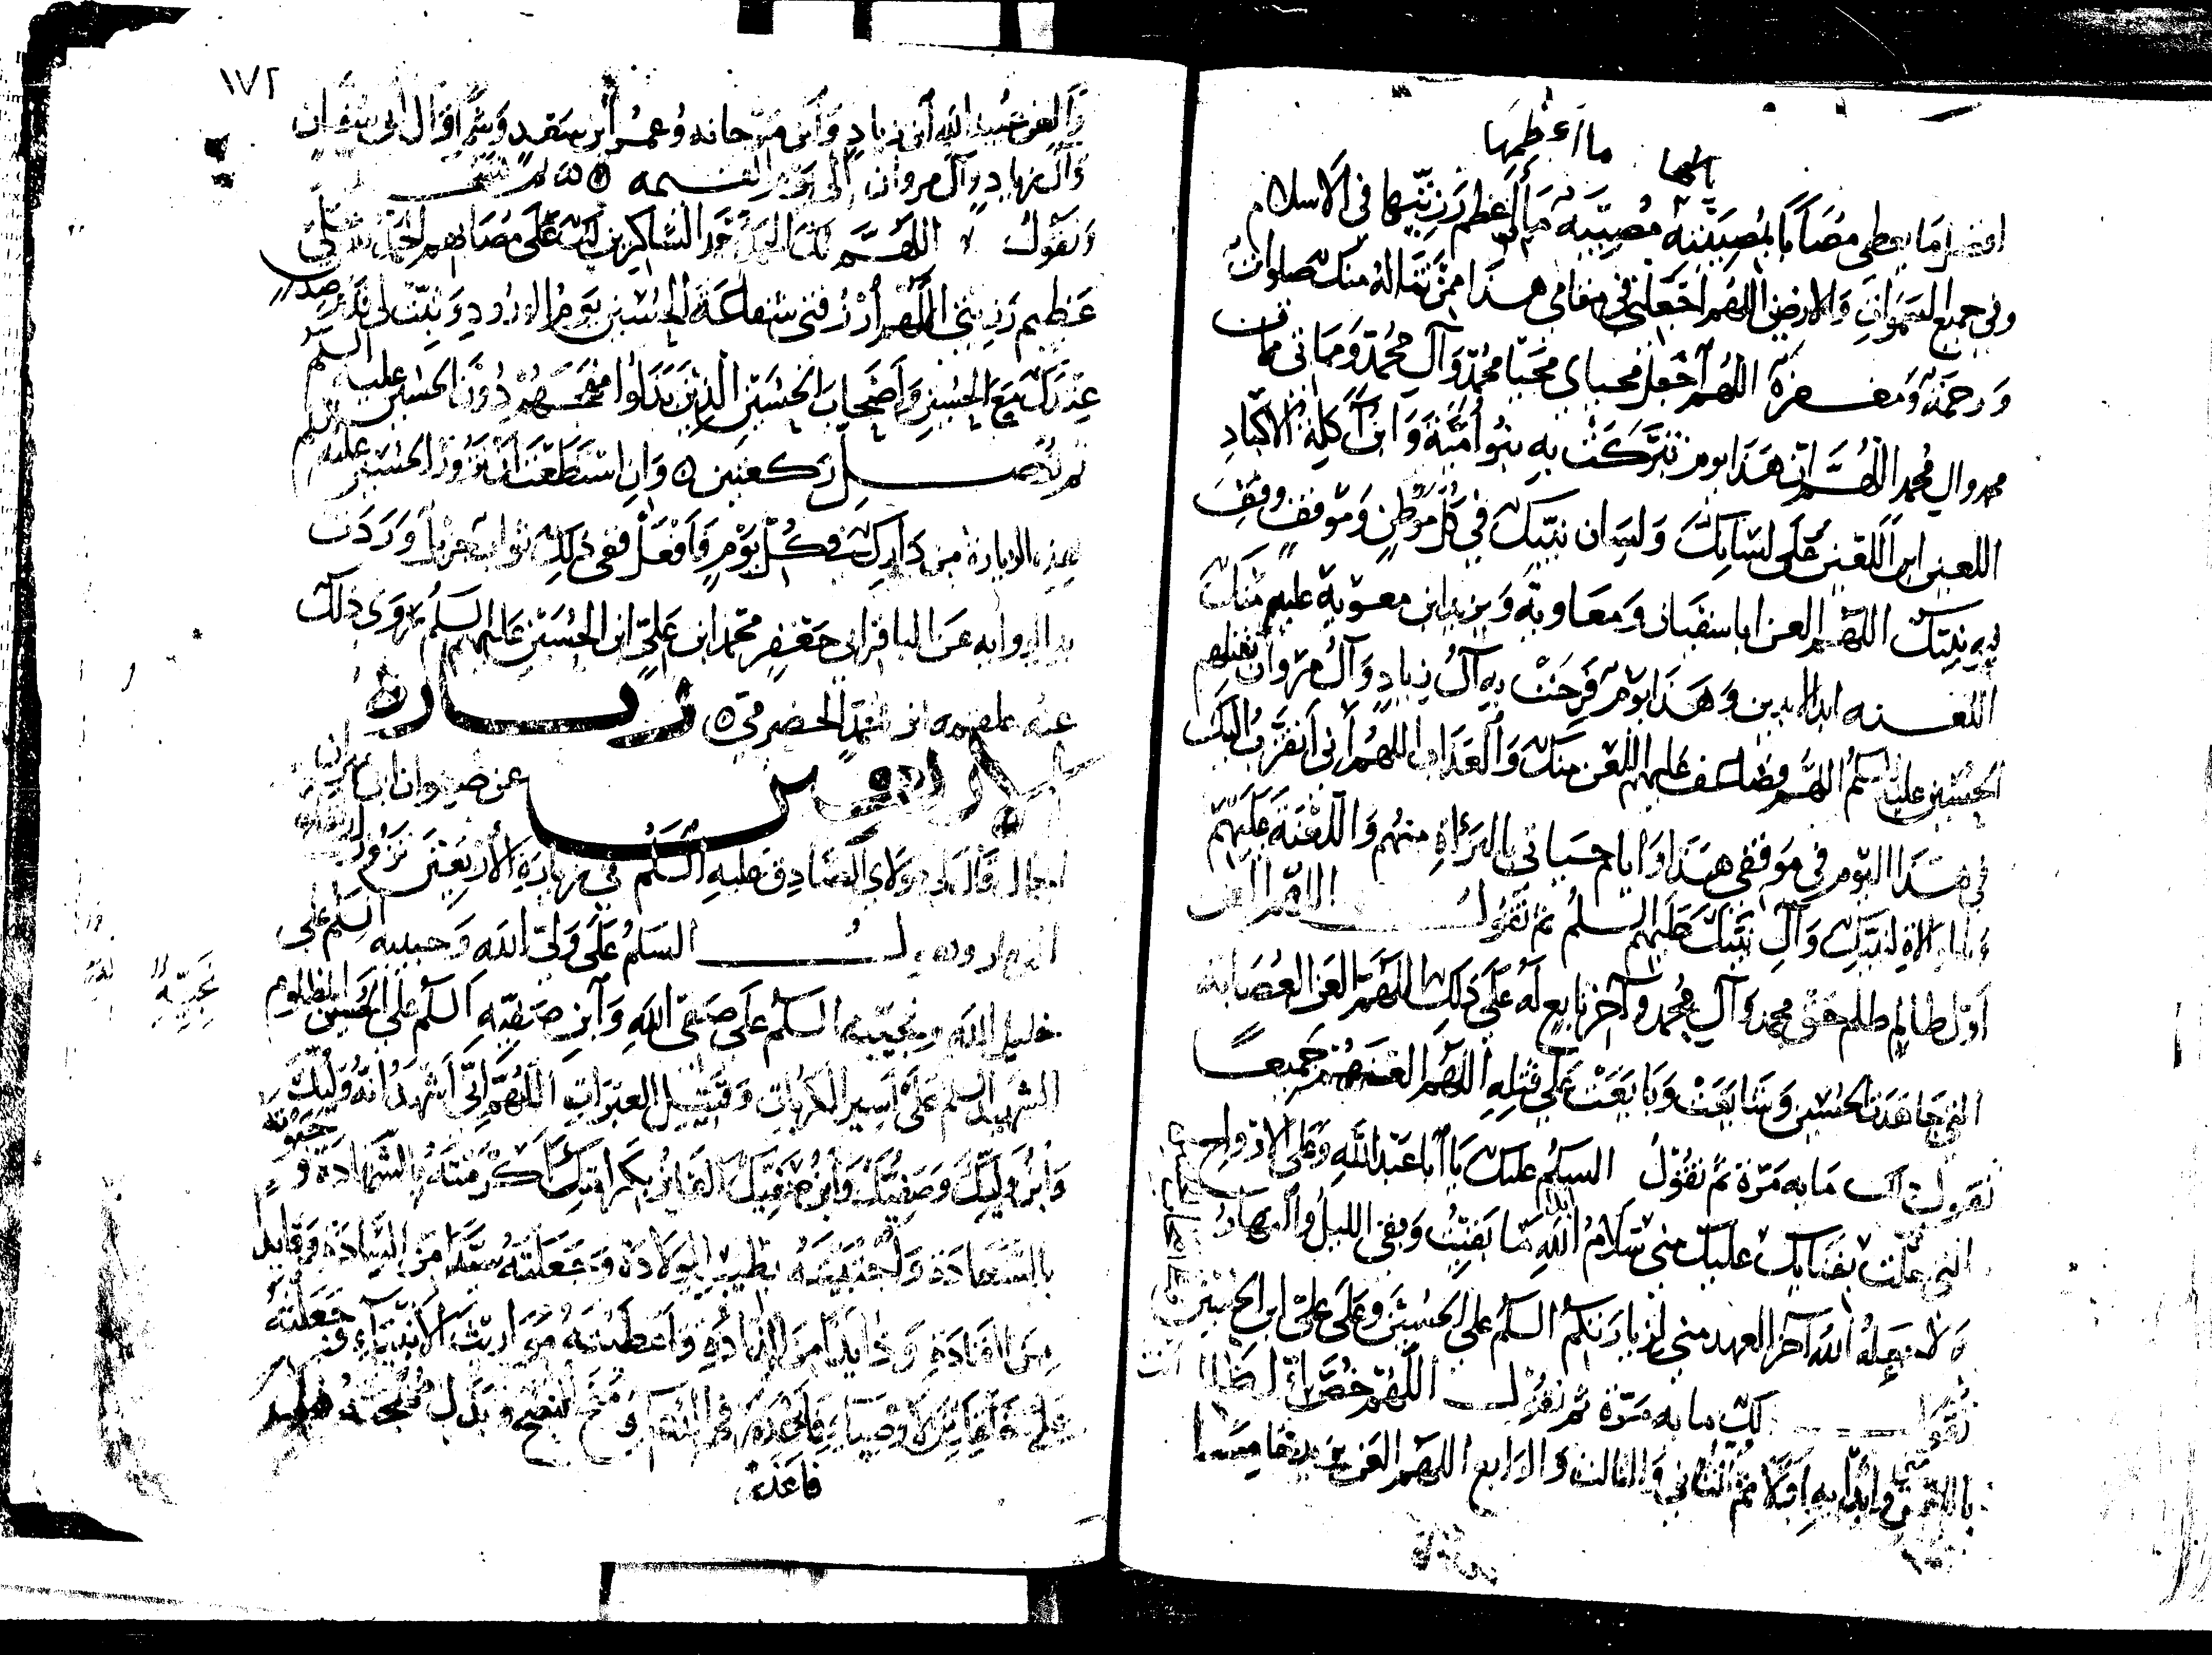 يالها ما اعظمها
افضل ما يعطي مصابا بمصيبته مصيبة ما اعظم رزيتها في الاسلام
وفي جميع السموات والارض اللهم اجعلني في مقامي هذا ممن تناله منك صلوات
ورحمة ومغفرة اللهم اجعل محياي محيا محمد وآل محمد ومماتي ممات
محمد وال محمد اللهم ان هذا يوم تبركت به بنو أمية وابن آكلة الاكباد
اللعين ابن اللعين على لسانك ولسان نبيك في كل موطن وموقف وقف
فيه نبيك اللهم العن ابا سفيان ومعاوية ويزيد ابن معوية عليهم منك
اللعنه ابد الابدين وهذا يوم فرحت به آل زياد وآل مروان بقتلهم
الحسين عليه السلم اللهم فضاعف عليهم اللعن منك والعذاب اللهم اني اتقرب اليك
في هذا اليوم في موقفي هذا وايام حياتي بالبرأة منهم واللعنة عليهم
وبالموالاة لنبيك وآل نبيك عليهم السلم ثم تقول اللهم العن
اول ظالم ظلم حق محمد وآل محمد وآخر تابع له على ذلك اللهم العن العصابة
التي جاهدت الحسين وشايعت وبايعت على قتله اللهم العنهم جميعا
تقول ذلك مايه مرة ثم تقول السلم عليك يا أبا عبد الله وعلى الارواح
التي حلت بفنايك عليك مني سلام الله ابدا ما بقيت وبقي الليل والنهار
ولا يجعله الله آخر العهد مني لزيارتكم السلم على الحسين وعلى علي ابن الحسين
تقول ذلك مايه مرة ثم تقول اللهم خص انت اول ظالم
باللعن مني وابدأ به اولا ثم الثاني والثالث والرابع اللهم العن يزيد خامسا
١٧٢
والعن عبيد الله ابن زياد وابن مرجانه وعمر ابن سعد وشمرا وآل ابي سفيان
وآل زياد وآل مروان الى يوم القيمه ثم تسجد
وتقول اللهم لك الحمد حمد الشاكرين لك على مصابهم الحمد لله على
عظيم رزيتي اللهم ارزقني شفاعة الحسين يوم الورود وثبت لي قدم صدق
عندك مع الحسين واصحاب الحسين الذين بذلوا مهجهم دون الحسين عليه السلم
ثم تصل ركعتين وان استطعت ان تزور الحسين عليه السلم
بهذه الزيارة من دارك في كل يوم فافعل ففي ذلك ثواب وردت
به الروايه عن الباقر ابي جعفر محمد ابن علي ابن الحسين عليهم السلم روى ذلك
عنه علقمه ابن محمد الحضرمي زيارة
الاربعين عن صفوان ابن مهران
الجمال قال قال لي مولاي الصادق عليه السلم في زيارة الأربعين تزور
السلم على ولي الله وحبيبه السلم على
خليل الله ونجيبه السلم على صفي الله وابن صفيه السلم على الحسين المظلوم
الشهيد السلم على أسير الكربات وقتيل العبرات اللهم اني أشهد أنه وليك
وابن وليك وصفيك وابن صفيك الفايز بكرامتك أكرمته بالشهادة وحبوته
بالسعادة واجتبيته بطيب الولادة وجعلته سيدا من السادة وقايدا
من القادة وذايدا من الذادة واعطيته مواريث الانبياء وجعلته
على خلقك من الاوصياء فاعذر في الدعاء ومنح النصح وبذل مهجته فيك
نجيبه
فاعذر